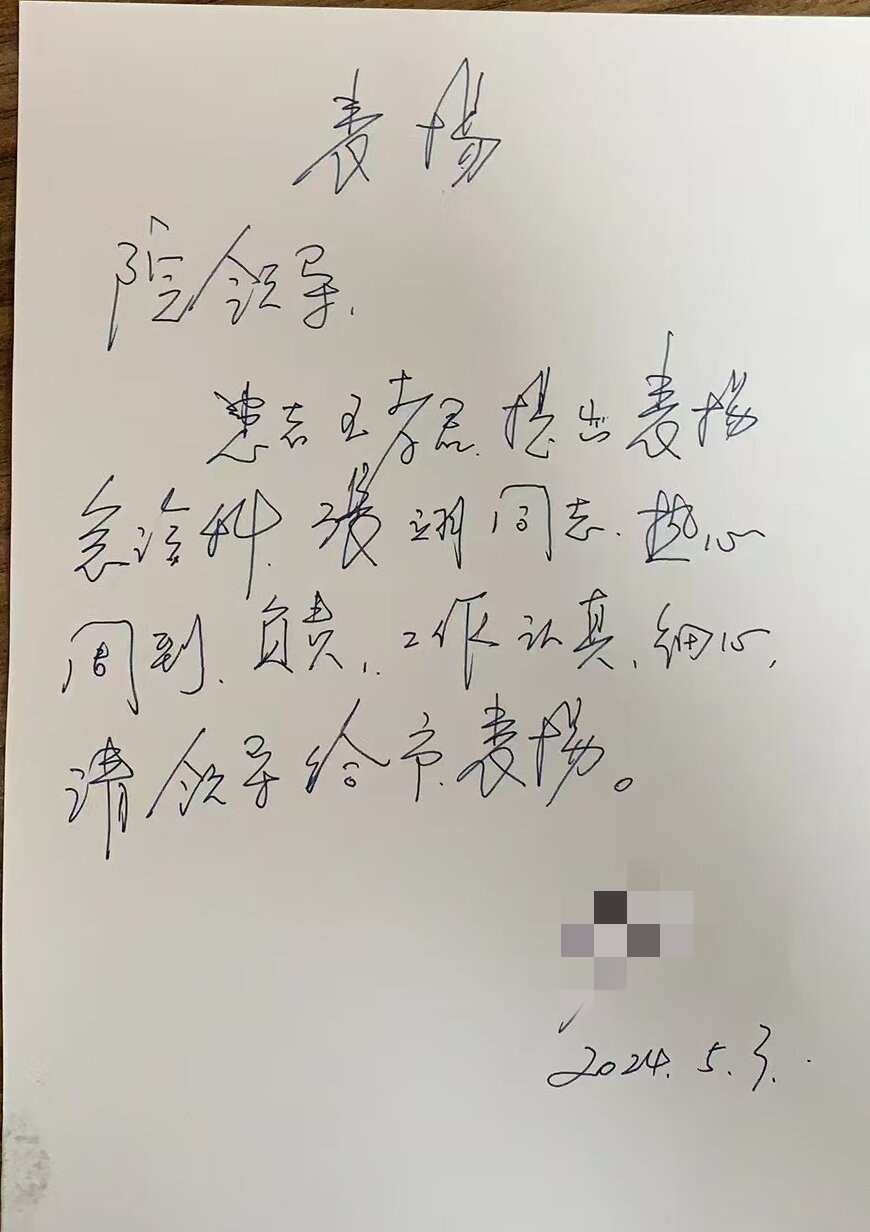 表扬
院领导.
患者王孝君.提出表扬
急诊科.张翊同志.热心
周到.负责,.工作认真.细心,
请领导给予表扬。
2024.5.3.